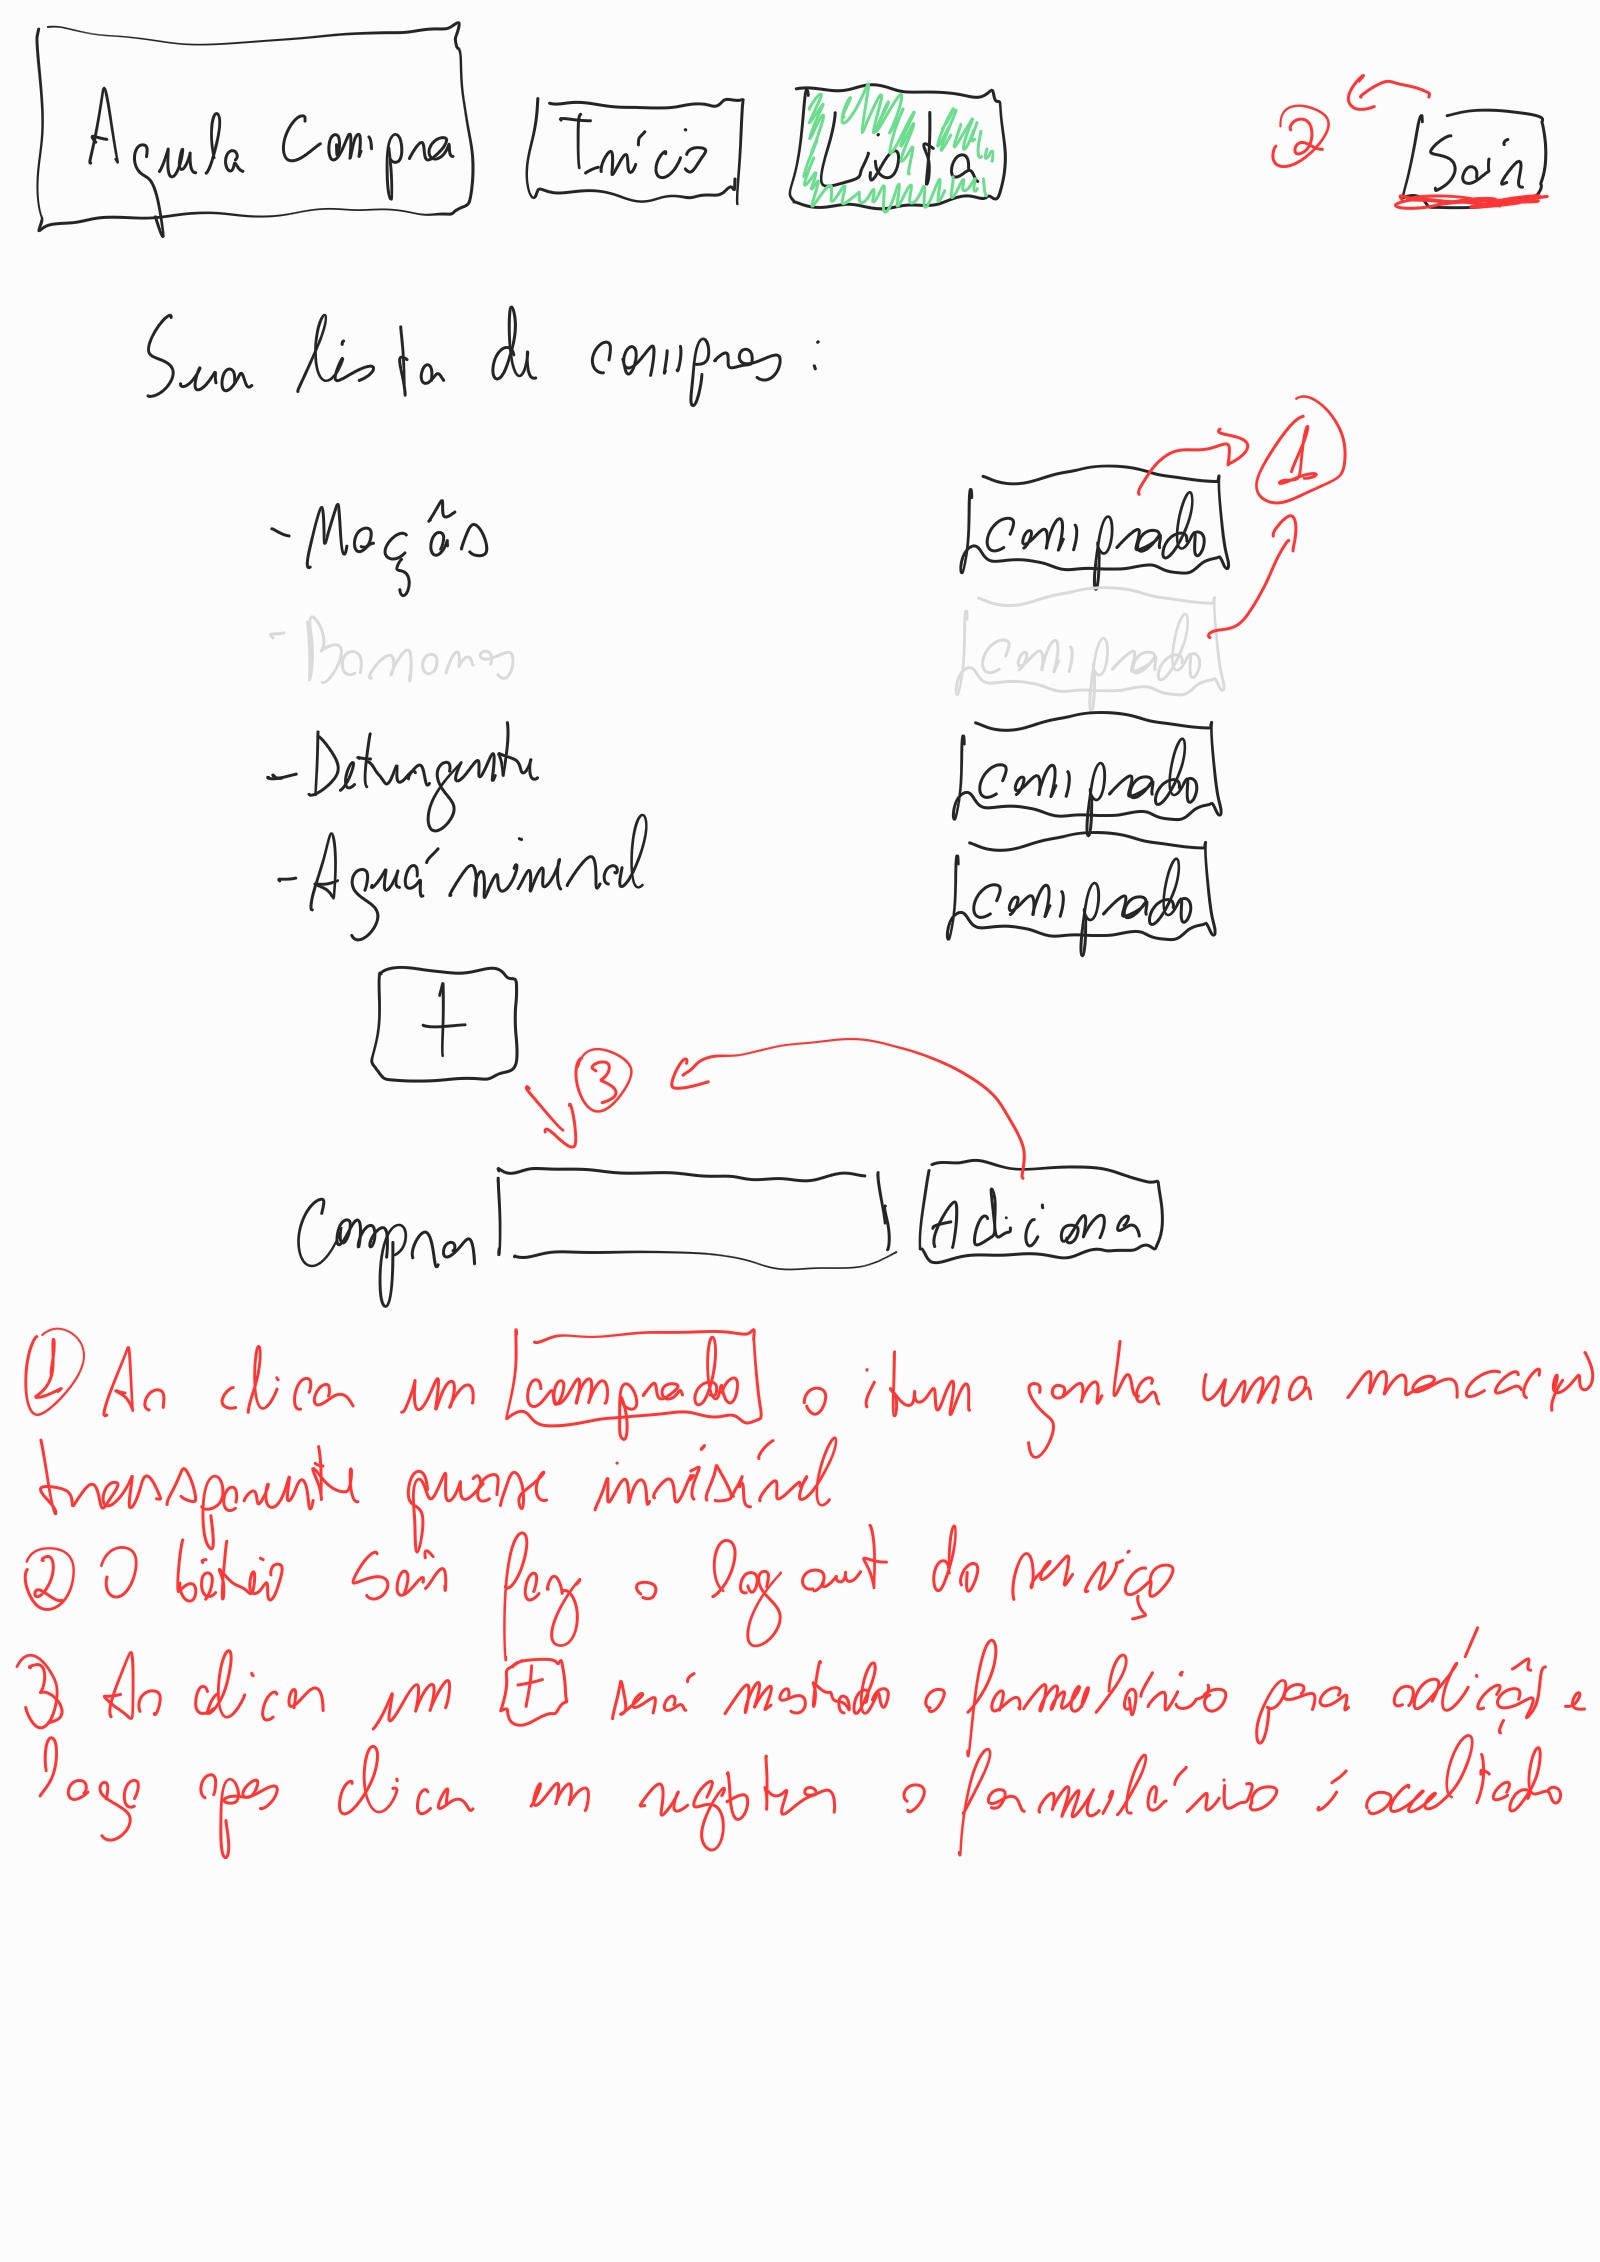 Agula Compra Início Lista 2 Sair
Sua lista de compras:
1
- Maçãs comprado
- Bananas comprado
- Detergente comprado
- Aguá mineral comprado
+
3
Comprar Adicionar
1 Ao clicar em comprado o item ganha uma marcação
transparente quase invisível
2 O botão Sair faz o logout do serviço
3 Ao clicar em + será mostrado o formulário para adição e
logo apos clicar em registrar o formulário é ocultado